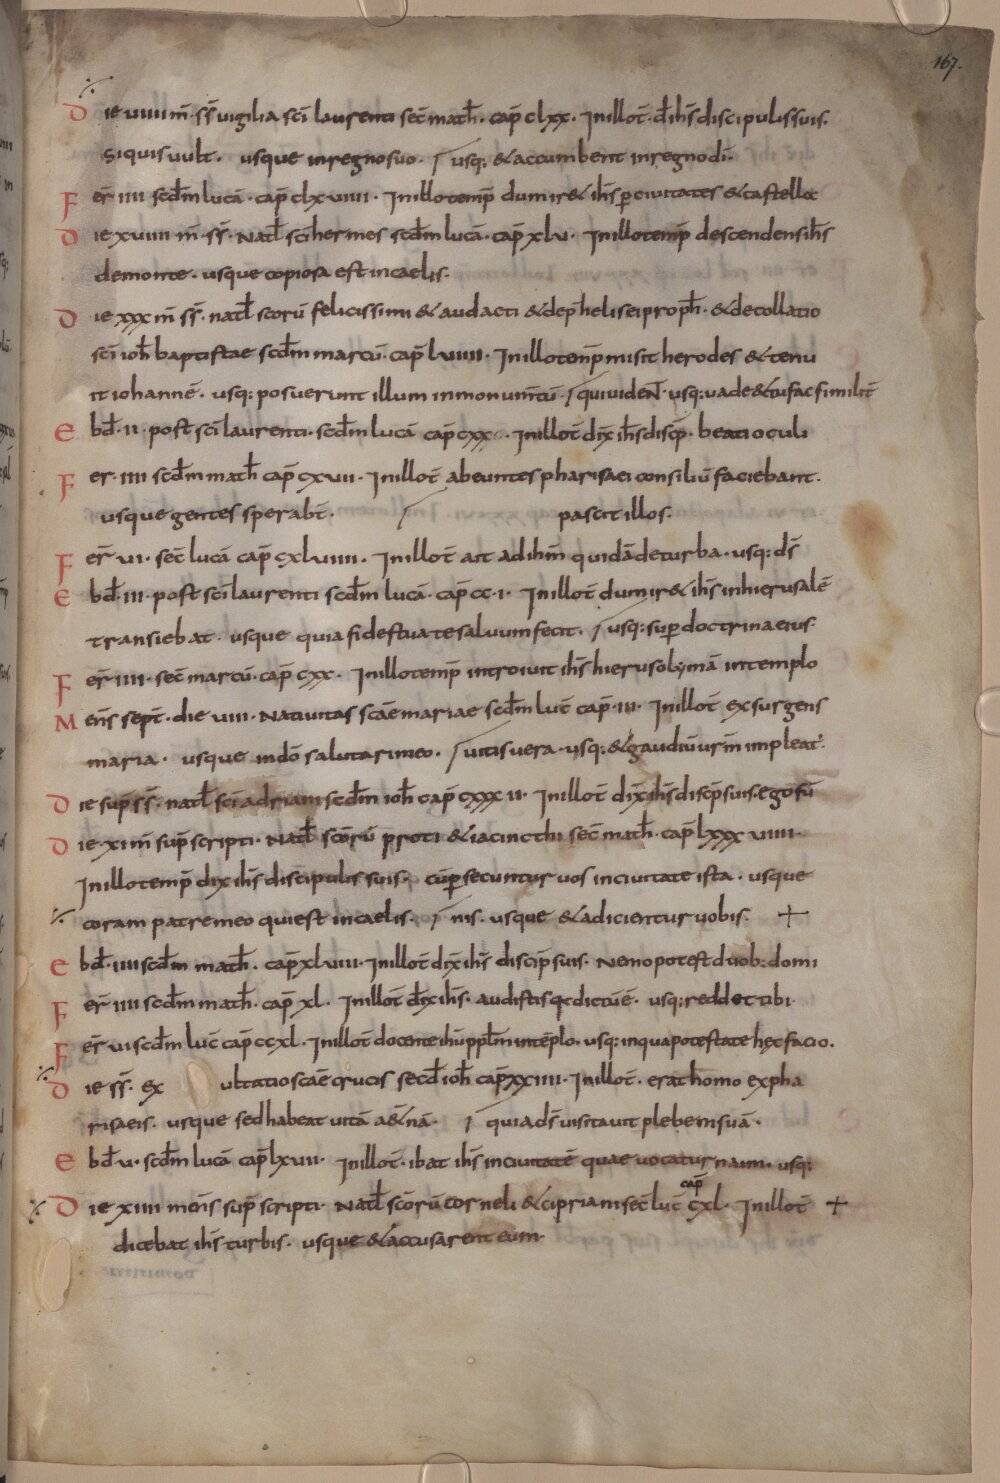 167.
Die viiii m̄ · ss̄ vigilia sc̄i laurenti sec̄ math̄ · cap̄ clxx · Inillot̄ · d̄ ih̄s discipulis suis ·
siquis vult · usque inregno suo · / usq: & accumbent inregno dī ·
Fer̄ iiii scd̄m lucā · cap̄ clxviiii · Inillotemp̄ dum ir& ih̄s per civitates & castella
Die xviiii m̄ · ss̄ · natl̄ sc̄i hermes scd̄m lucā · cap̄ xlv · Inillotemp̄ descendens ih̄s
demonte · usque copiosa est incaelis ·
Die xxx m̄ ss̄ · natl̄ scorū felicissimi & audacti & dep̄ helisei proph̄ · & decollatio
sc̄i ioh̄ baptistae scd̄m marcū · cap̄ lviiii · Inillotemp̄ misit herodes & tenu
it iohannē · usq: posuerunt illum inmonumt̄ū · / qui viden̄t · usq: vade & tu fac similit̄
Ebd̄ · ii · post sc̄i laurenti · scd̄m lucā cap̄ cxx · Inillot̄ dix̄ ih̄s discip̄ · beati oculi
Fer · iiii scd̄m math̄ cap̄ cxvii · Inillot̄ abeuntes pharisaei consiliū faciebant ·
usque gentes sperabt̄ · / pascit illos ·
Fer̄ vi · sec̄ lucā cap̄ cxlviiii · Inillot̄ ait ad ih̄m quidā deturba · usq: ds̄
Ebd̄ · iii · post sc̄i laurenti scd̄m lucā · cap̄ cc · i · Inillot̄ dum ir& ih̄s inhierusalē
transiebat · usque quia fides tua te salvum fecit · / usq: super doctrina eius ·
Fer̄ iiii · sec̄ marcū · cap̄ cxx · Inillotemp̄ introivit ih̄s hierusolymā intemplo
Mens̄ sept̄ · die viii · nativitas scāe mariae scd̄m luc̄ cap̄ · iii · Inillot̄ exsurgens
maria · usque indō salutari meo · / vitis vera · usq: & gaudiū vrm̄ impleat̄ ·
Die sup̄ ss̄ · natl̄ sc̄i adriani scd̄m ioh̄ cap̄ cxxxii · Inillot̄ dix̄ ih̄s discip̄ suis · ego sū
Die · xi m̄ sup̄scripti · natl̄ scorū proti & iacincthi sec̄ math̄ · cap̄ lxxxviiii ·
Inillotemp̄ dix̄ ih̄s discipulis suis · cūpersecuntur vos incivitate ista · usque
coram patre meo qui est incaelis · / nis · usque & adicientur vobis · +
Ebd̄ · iiii scd̄m math̄ · cap̄ xlviii · Inillot̄ dix̄ ih̄s discip̄ suis · Nemo potest duob: domi
Fer̄ iiii scd̄m math̄ · cap̄ xl · Inillot̄ dix̄ ih̄s · audistis qc dictū ē · usq: reddet tibi ·
Fer̄ vi scd̄m luc̄ cap̄ ccxl · Inillot̄ docente ihū ppl̄m intēplo · usq: inqua potestate hęc facio ·
Die ss̄ · exultatio scāe crucis secd̄ ioh̄ cap̄ xxiiii · Inillot̄ · erat homo expha
risaeis · usque sed habeat vitā a&nā · / quia ds̄ visitavit plebem suā ·
Ebd̄ v · scd̄m lucā cap̄ lxvii · Inillot̄ · ibat ih̄s incivitatē quae vocatur naim · usq:
Die xiiii mens̄ sup̄scripti · natl̄ scorū corneli & cipriani sec̄ luc̄ cap̄ cxl · Inillot̄ +
dicebat ih̄s turbis · usque & accusarent eum ·